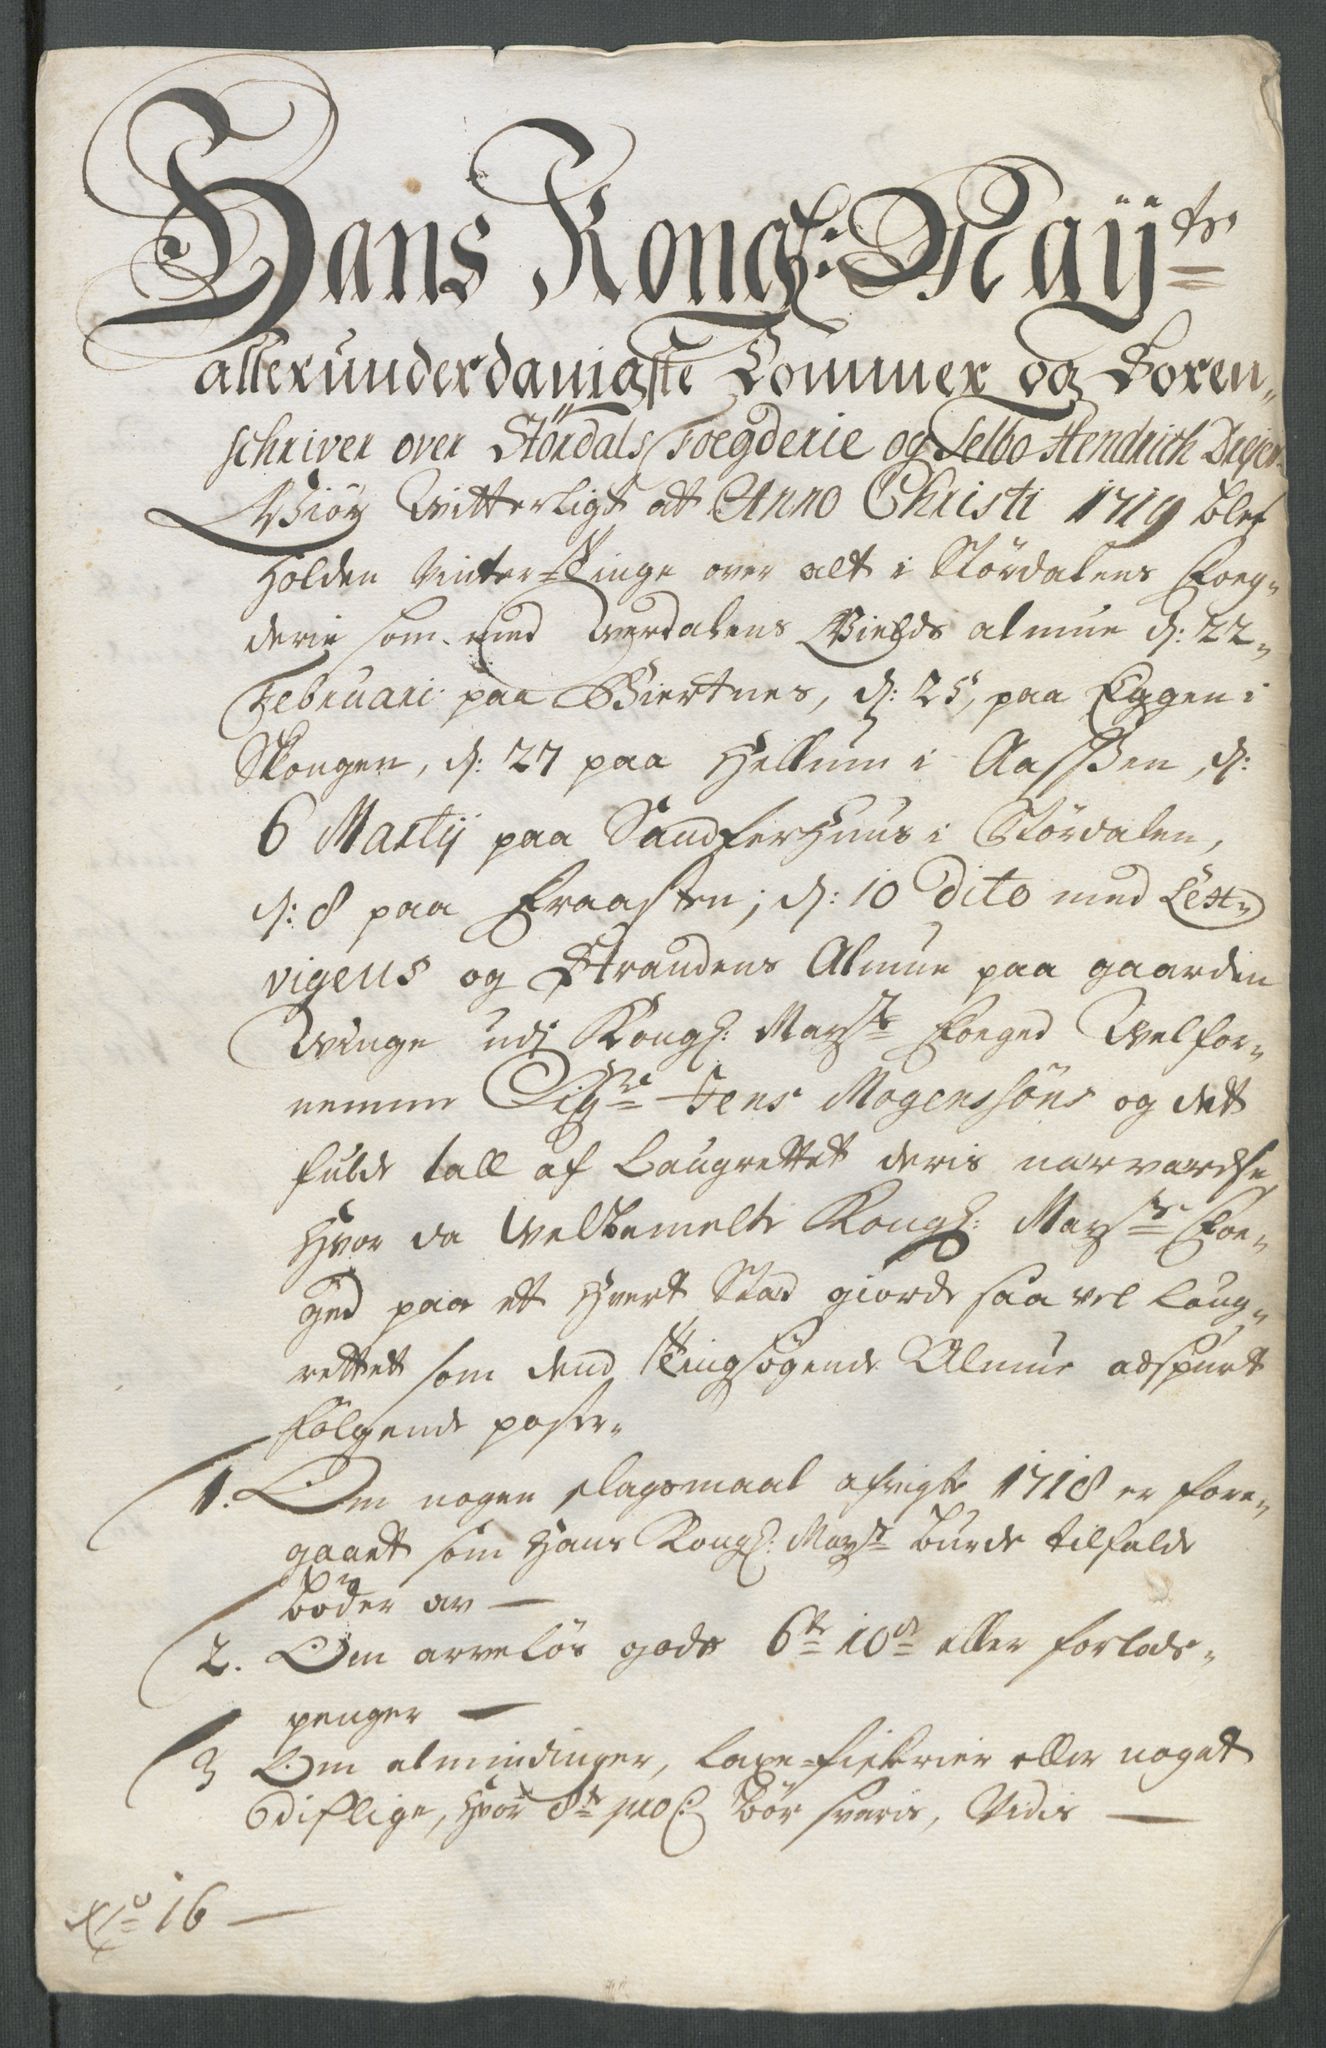 Hans Kongl: Maÿts
allerunderdanigste Sommer og Soren„
schriver over Stördals Foegderie og Selbo Hendrich Drejer
Giör Witterligt at Anno Christi 1719 blef
holden Vinter-Tinge over alt i Stördalens Foeg„
derie som med Werdalens Gields almue d: 22„
Februari paa Biertnes, d: 25, paa Eggen i
Skongen, d: 27 paa Hellum i Aassen, d:
6 Martij paa Sandferhuus i Stördalen,
d: 8 paa Fraasten; d: 10 Dito med Lex„
vigens og Strandens Almue paa gaarden
Winge udj Kongl: Mayts Foeged Welfor„
nemme Sigre Jens Mogensöns og det
fulde tall af Laugrettet deris nærværelse,
Hvor da Welbemelte Kongl: Mayts Foe„
ged paa et hvert Stad giorde saa vel Laug„
rettet som dend Tingsögende Almue adspurt
fölgende poster„
1. Om nogen slagsmaal afvigte 1718 er fore„
gaaet som Hans Kongl: Mayt burde tilfalde
böder av —
2. Om arvelös gods 6te 10de eller forlods„
penger —
3 Om almindinger, laxe-fiskerier eller noget
dislige, hvor 8de pro C: bör svaris, Vidis —
No 16 —